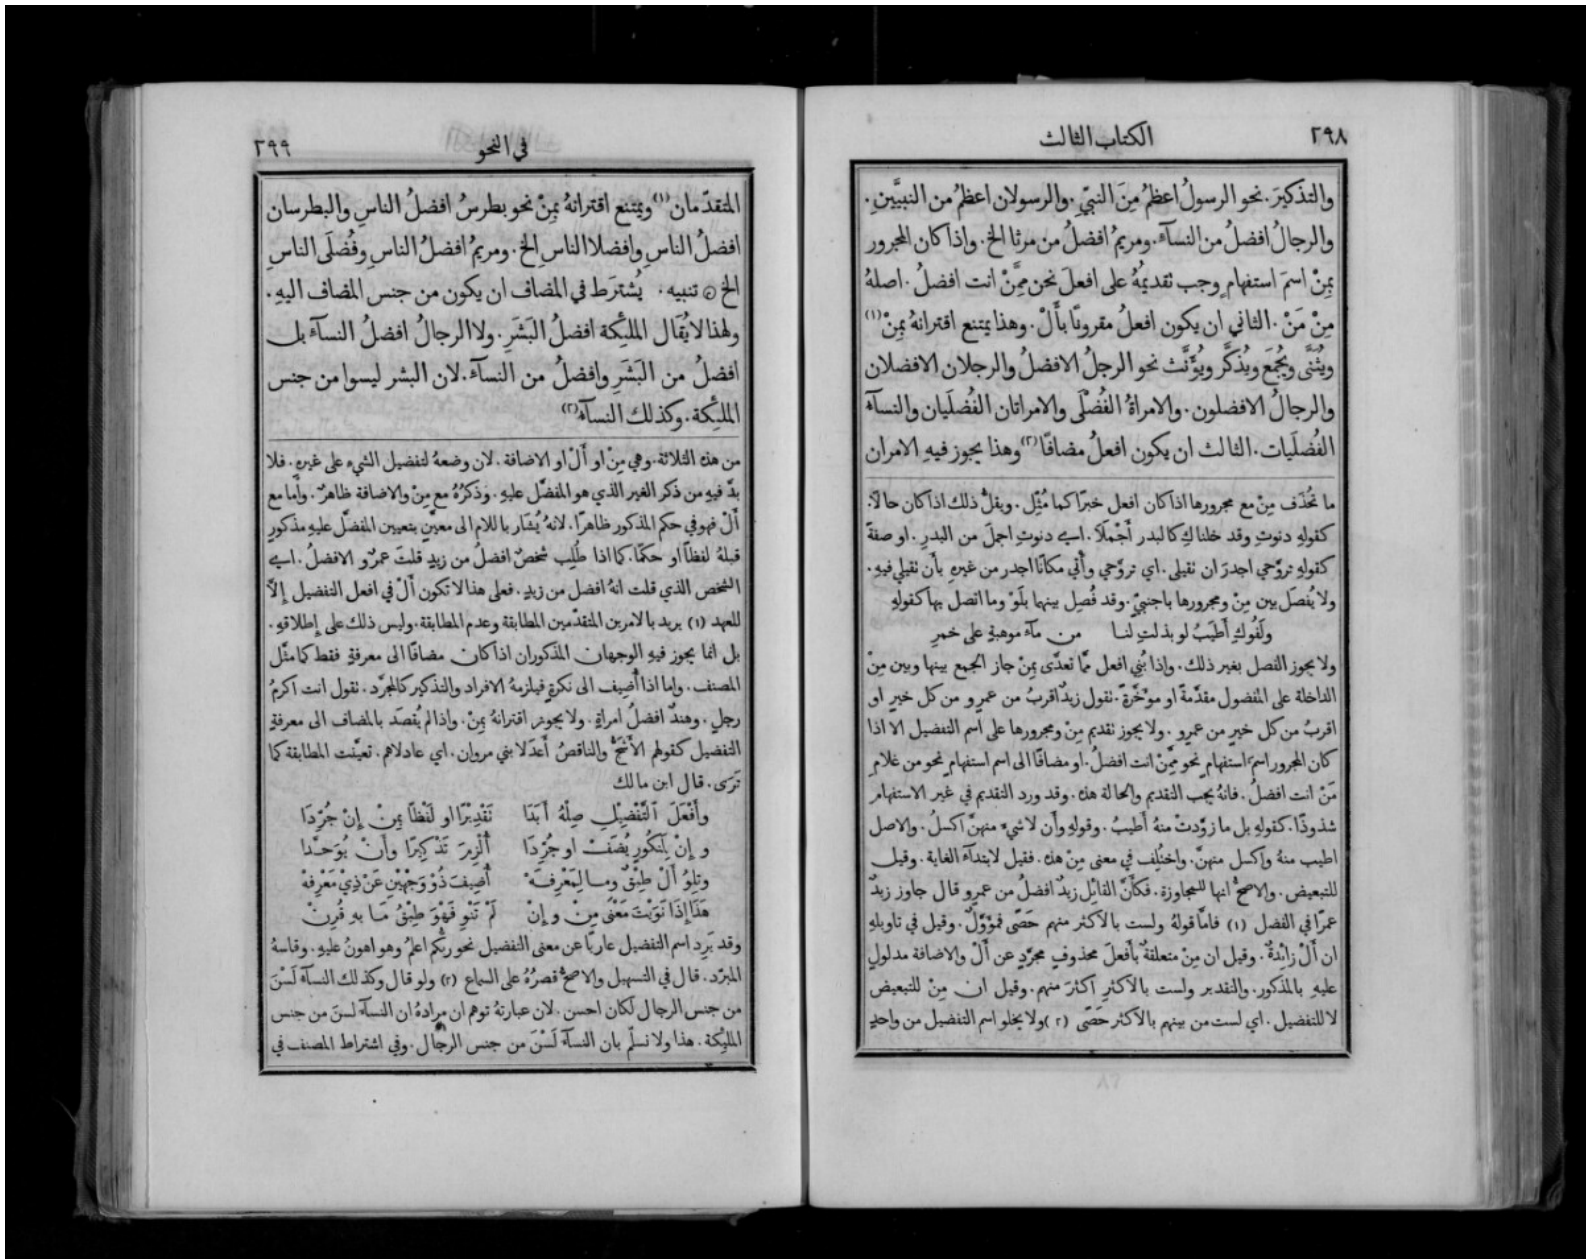 ٢٩٨
الكتاب الثالث
والتذكيرَ. نحو الرسولُ اعظمُ مِنَ النبيّ. والرسولان اعظمُ من النبيَّينِ.
والرجالُ افضلُ من النسآءِ. ومريمُ افضلُ من مرثا الخ. واذا كان المجرور
بِمِنْ اسمَ استفهامٍ وجب تقديمُهُ على افعلَ نحن مِمَّنْ انت افضلُ. اصلهُ
مِنْ مَنْ. الثاني ان يكون افعلُ مقرونًا بأَلْ. وهذا يمتنع اقترانهُ بِمِنْ (١)
ويُثنَّى ويُجمَع ويُذكَّر ويُوَّنَّث نحو الرجلُ الافضلُ والرجلان الافضلان
والرجالُ الافضلون. والامراةُ الفُضْلَى والامراتان الفُضلَيان والنسآءُ
الفُضلَيات. الثالث ان يكون افعلُ مضافًا (٢) وهذا يجوز فيهِ الامران
ما تُحْذَف مِنْ مع مجرورها اذا كان افعل خبرًا كما مُثِّل. ويقلُّ ذلك اذا كان حالاً.
كقولهِ دنوتِ وقد خلناكِ كالبدر أَجْمَلاَ. اي دنوتِ اجملَ من البدرِ. او صفةً
كقولهِ تروَّحي اجدرَ ان تقيلى. اي تروَّحي وأْتي مكانًا اجدر من غيرهِ بأَن تقيلي فيهِ.
ولا يُفصَل بين مِنْ ومجرورها باجنبيّ. وقد فُصِل بينهما بلَوْ وما اتصل بها كقولهِ
ولَفُوكِ أَطيَبُ لو بذلتِ لنا من مآءِ موهبةٍ على خمرِ
ولا يجوز الفصل بغير ذلك. واذا بُنِي افعل ممَّا تعدَّى بِمِنْ جاز الجمع بينها وبين مِنْ
الداخلة على المفضول مقدَّمةً او موخَّرةً. تقول زيدٌ اقربُ من عمرٍو من كل خيرٍ او
اقربُ من كل خيرٍ من عمرٍو. ولا يجوز تقديم مِنْ ومجرورها على اسم التفضيل الا اذا
كان المجرور اسم استفهامٍ نحو مِمَّنْ انت افضلُ. او مضافًا الى اسم استفهامٍ نحو من غلامِ
مَنْ انت افضلُ. فانهُ يجب التقديم والحالة هذه. وقد ورد التقديم في غير الاستفهام
شذوذًا. كقولهِ بل ما زوَّدتْ منهُ أَطيبُ. وقولهِ وأَن لا شيءَ منهنَّ اكسلُ. والاصل
اطيب منهُ واكسل منهنَّ. واختُلِف في معنى مِنْ هذه. فقيل لابتدآءِ الغاية. وقيل
للتبعيض. والاصحُّ انها للمجاوزة. فكأَنَّ القائِل زيدٌ افضلُ من عمرٍو قال جاوز زيدٌ
عمرًا في الفضل (١) فامَّا قولهُ ولست بالاكثر منهم حَصًى فموَّوَّلٌ. وقيل في تاويلهِ
ان أَلْ زائِدةٌ. وقيل ان مِنْ متعلقةٌ بأَفعلَ محذوفٍ مجرَّدٍ عن أَلْ والاضافة مدلولٍ
عليهِ بالمذكور. والتقدير ولست بالاكثرِ اكثرَ منهم. وقيل ان مِنْ للتبعيض
لا للتفضيل. اي لست من بينهم بالاكثر حَصًى (٢) ولا يخلو اسم التفضيل من واحدٍ
في النحو
٢٩٩
المتقدّمان (١) ويمتنع اقترانهُ بِمِنْ نحو بطرسُ افضلُ الناسِ والبطرسان
افضلُ الناس وافضلا الناسِ الخ. ومريمُ افضلُ الناسِ وفُضلَى الناسِ
الخ تنبيه. يُشترَط في المضاف ان يكون من جنس المضاف اليهِ.
ولهذا لا يُقَال الملئِكة افضلُ البَشَرِ. ولا الرجالُ افضلُ النسآءِ بل
افضلُ من البَشَرِ وافضلُ من النسآءِ. لان البشر ليسوا من جنس
الملئِكة. وكذلك النسآءُ (٢)
من هذه الثلاثة. وهي مِنْ او أَلْ او الاضافة. لان وضعهُ لتفضيل الشيءِ على غيرهِ. فلا
بدَّ فيهِ من ذكر الغير الذي هو المفضَّل عليهِ. وذكرُهُ مع مِنْ والاضافة ظاهرٌ. وأَما مع
أَلْ فهو في حكم المذكور ظاهرًا. لانهُ يُشَار باللام الى معيَّنٍ بتعيين المفضَّل عليهِ مذكورٍ
قبلهُ لفظًا او حكمًا. كما اذا طُلِب شخصٌ افضلُ من زيدٍ قلتَ عمرٌو الافضلُ. اي
الشخص الذي قلت انهُ افضل من زيدٍ. فعلى هذا لا تكون أَلْ في افعل التفضيل إِلاَّ
للعهد (١) يريد بالامرين المتقدّمين المطابقة وعدم المطابقة. وليس ذلك على إِطلاقهِ.
بل انما يجوز فيهِ الوجهان المذكوران اذا كان مضافًا الى معرفةٍ فقط كما مثَّل
المصنف. واما اذا أُضِيف الى نكرةٍ فيلزمهُ الافراد والتذكير كالمجرَّد. تقول انت اكرمُ
رجلٍ. وهندٌ افضلُ امراةٍ. ولا يجوز اقترانهُ بِمِنْ. واذا لم يُقصَد بالمضاف الى معرفةٍ
التفضيل كقولهم الأَشَجُّ والناقصُ أَعدَلا بني مروان. اي عادلاهم. تعيَّنت المطابقة كما
تَرَى. قال ابن مالك
وأَفْعَلَ ٱلتَّفْضِيْلِ صِلْهُ أَبَدَا تَقْدِيْرًا او لَفْظًا بِمِنْ إِنْ جُرِّدَا
وإِنْ لِمَنْكُورٍ يُضَفْ او جُرِّدَا أُلْزِمَ تَذْكِيرًا وأَنْ يُوَحَّدَا
وتِلوُ أَلْ طِبْقٌ وما لِمَعْرِفَهْ أُضِيفَ ذُوْ وَجْهَيْنِ عَنْ ذِيْ مَعْرِفَهْ
هَذَا إِذَا نَوَيْتَ مَعْنَى مِنْ وإِنْ لَمْ تَنْوِ فَهْوَ طِبْقُ مَا بِهِ قُرِنْ
وقد يَرِد اسم التفضيل عاريًا عن معنى التفضيل نحو ربُّكم اعلمُ وهو اهونُ عليهِ. وقاسهُ
المبرّد. قال في التسهيل والاصحُّ قصرُهُ على السماع (٢) ولو قال وكذلك النسآءُ لَسْنَ
من جنس الرجال لكان احسن. لان عبارتهُ توهم ان مرادهُ ان النسآءَ لسنَ من جنس
الملئِكة. هذا ولا نسلّم بان النسآءَ لَسْنَ من جنس الرجال. وفي اشتراط المصنف في